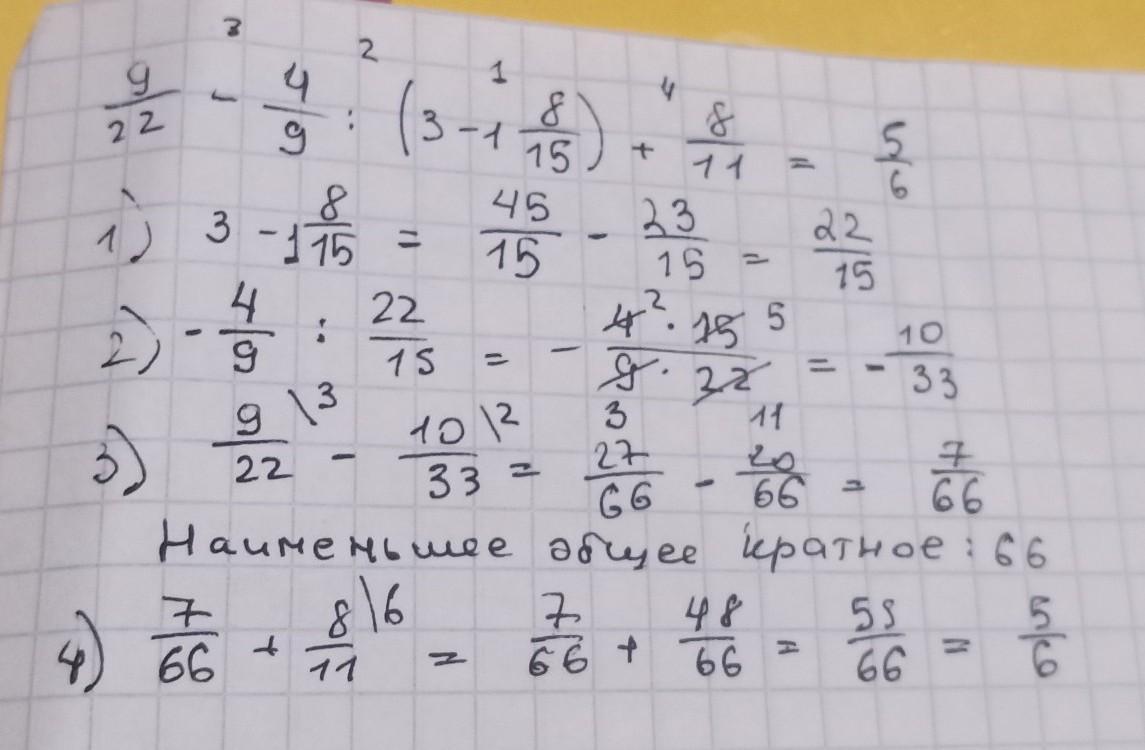 9/22 - 4/9 : (3 - 1 8/15) + 8/11 = 5/6
1) 3 - 1 8/15 = 45/15 - 23/15 = 22/15
2) - 4/9 : 22/15 = - 4² · 15 5 / 9 · 22 = - 10/33
3 11
3) 9/22 \3 - 10/33 \2 = 27/66 - 20/66 = 7/66
Наименьшее общее кратное : 66
4) 7/66 + 8/11 \6 = 7/66 + 48/66 = 55/66 = 5/6